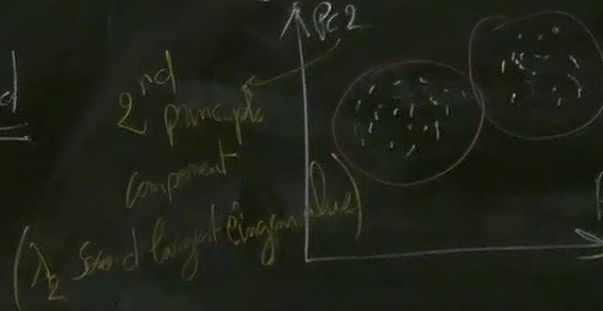 PC2
d
2nd
principle
component
(λ2 second largest eigenvalues)